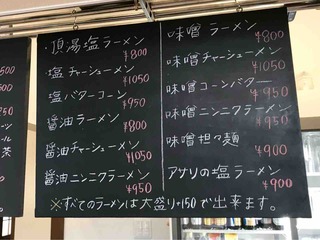 ・頂湯塩ラーメン
¥800
・塩チャーシューメン
¥1050
塩バターコーン
¥950
醤油ラーメン
¥800
醤油チャーシューメン
¥1050
醤油ニンニクラーメン
¥950
味噌ラーメン
¥800
味噌チャーシューメン
¥1050
味噌コーンバター
¥950
味噌ニンニクラーメン
¥950
味噌担々麺
¥900
アサリの塩ラーメン
¥900
※すべてのラーメンは大盛り+150で出来ます。
500
茶